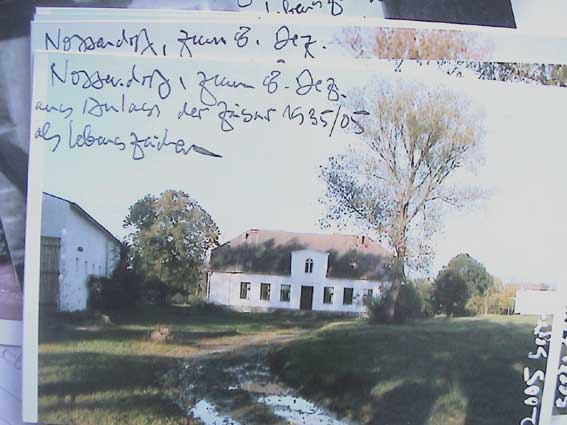 Nossendorf, zum 8. Dez.
Nossendorf, zum 8. Dez.
aus Anlass der Zäsur 1935/05
als Lebenszeichen